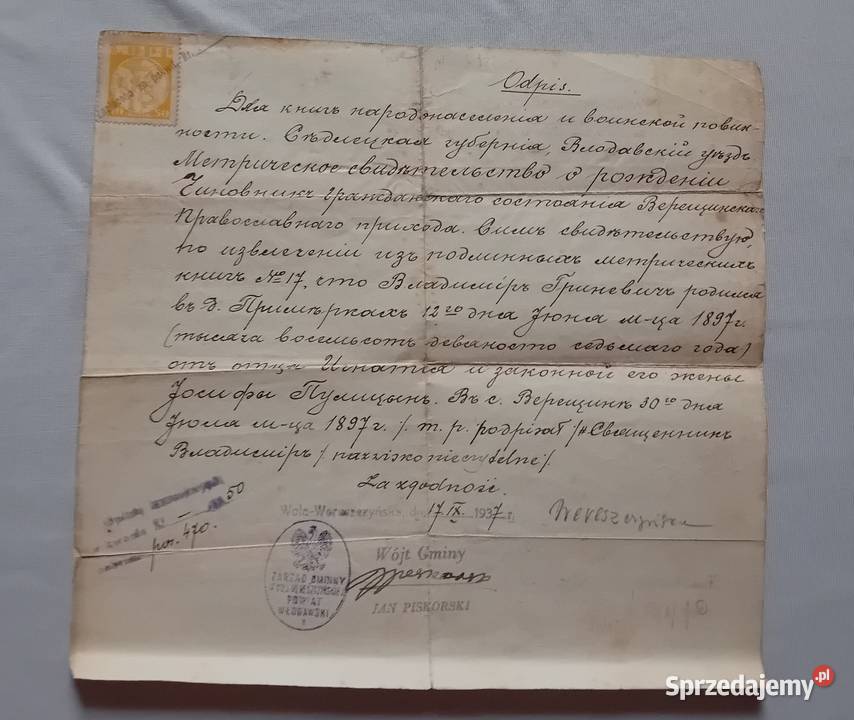 Odpis.
Для книгъ народонаселенія и воинской повин-
ности. Сѣдлецкая губернія, Влодавскій уѣздъ
Метрическое свидѣтельство о рожденіи
Чиновникъ гражданскаго состоянія Верещинскаго
Православнаго прихода. Симъ свидѣтельствую,
по извлеченіи изъ подлинныхъ метрическихъ
книгъ № 17, что Владиміръ Гриневичъ родился
въ д. Примѣркахъ 12го дня Іюня м-ца 1897 г.
(тысяча восемьсотъ девяносто седьмаго года)
отъ отца Игнатія и законной его жены
Іосифы Пулицынъ. Въ с. Верещинѣ 30го дня
Іюля м-ца 1897 г. /. m. p. podpisał /# Священникъ
Владиміръ /. nazwisko nieczytelne/.
Za zgodność.
50
Wola-Wereszczyńska, dn. 17 IX. 1937 r.
poz. 470.
Wójt Gminy
ZARZĄD GMINY
POWIAT
WŁODAWSKI
JAN PISKORSKI
Sprzedajemy.pl